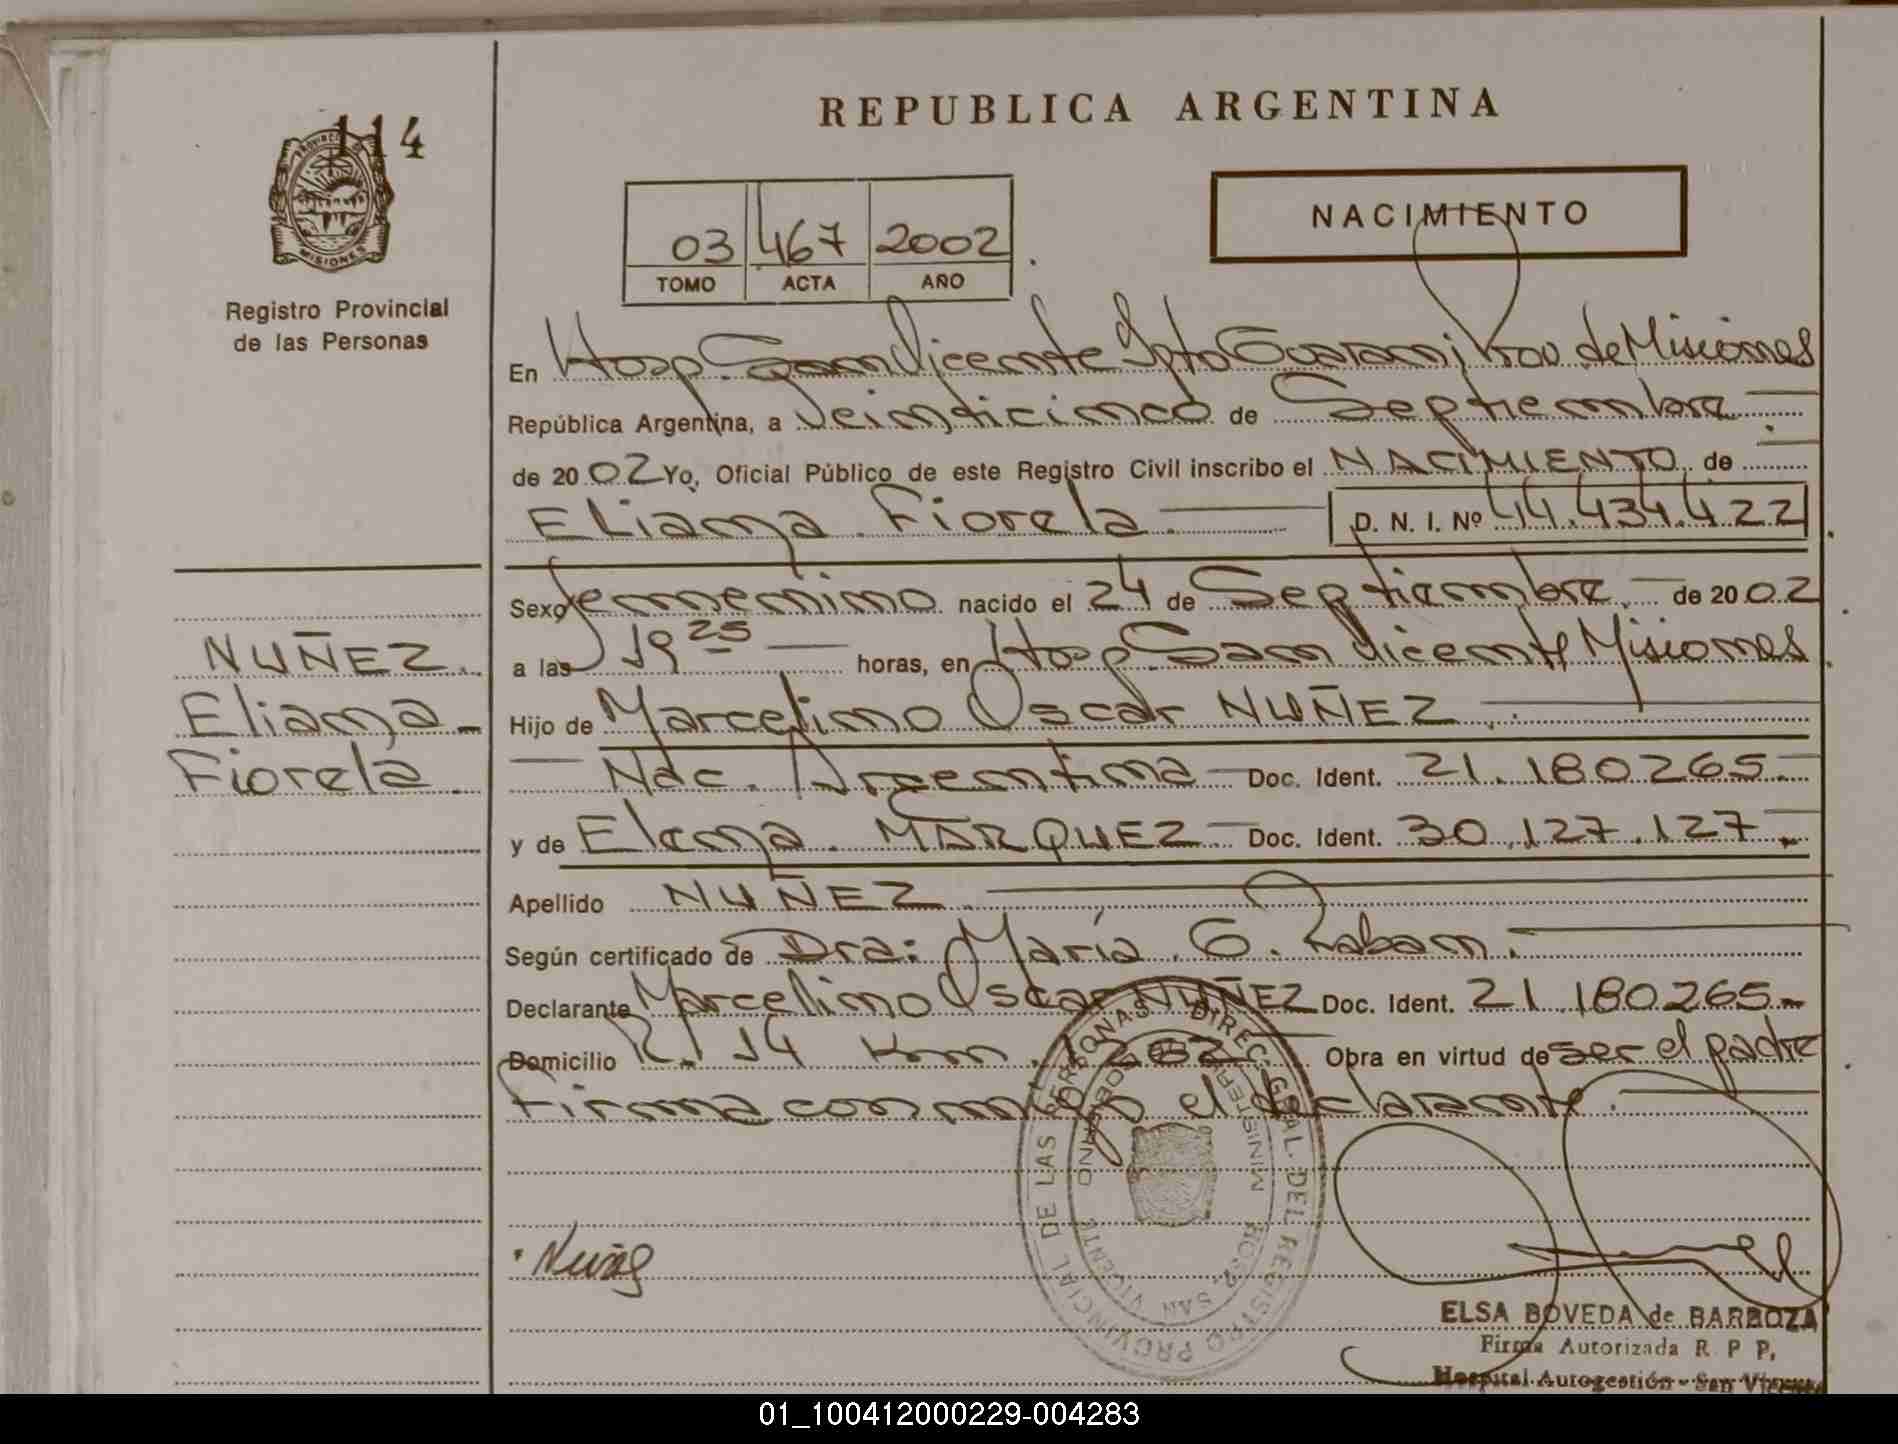 114
REPUBLICA ARGENTINA
NACIMIENTO
03 467 2002
TOMO ACTA AÑO
MISIONES
Registro Provincial
de las Personas
En Hosp. San Vicente Dpto Guarani; Prov. de Misiones
República Argentina, a Veinticinco de Septiembre
de 2002 Yo, Oficial Público de este Registro Civil inscribo el NACIMIENTO de
Eliana Fiorela D. N. I. Nº 44.434.422
Sexo femenino nacido el 24 de Septiembre de 2002
a las 19 25 horas, en Hosp San Vicente Misiones
Hijo de Marcelino Oscar NUÑEZ
Nac. Argentina Doc. Ident. 21.180265
y de Elena MARQUEZ Doc. Ident. 30.127.127.
Apellido NUÑEZ
Según certificado de Dra: María G. Laban.
Declarante Marcelino Oscar NUÑEZ Doc. Ident. 21.180265
Domicilio R. 14 Km. 1262 Obra en virtud de ser el padre
Firma conmigo el declarante.
NUÑEZ
Eliana
Fiorela
Nuñez
DIREC. GRAL. DEL REGISTRO PROVINCIAL DE LAS PERSONAS
HOSP. SAN VICENTE
ELSA BOVEDA de BARBOZA
Firma Autorizada R P P,
Hospital Autogestión - San Vicente
01_100412000229-004283